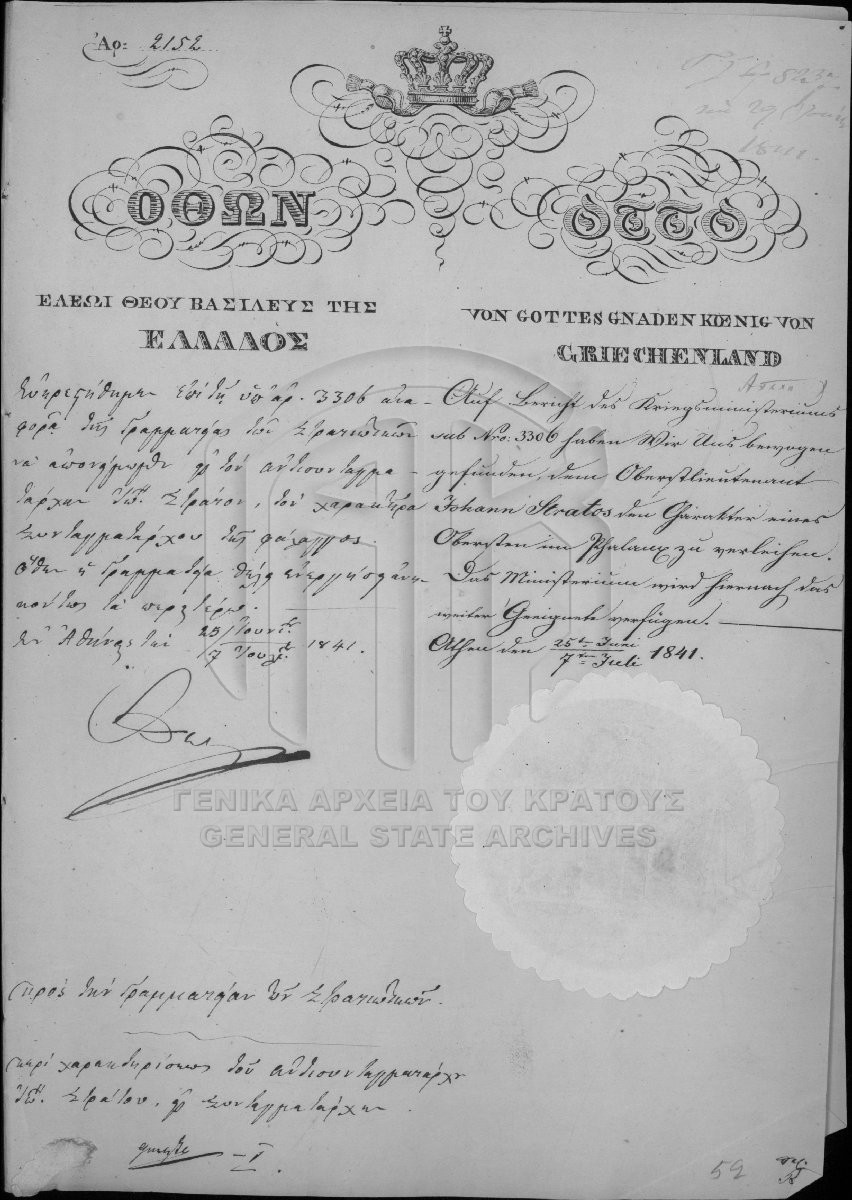 Ἀρ: 2152
ΟΘΩΝ
ΕΛΕΩΙ ΘΕΟΥ ΒΑΣΙΛΕΥΣ ΤΗΣ
ΕΛΛΑΔΟΣ
Εὐηρεστήθημεν ἐπὶ τῇ ὑπ' ἀρ. 3306 ἀνα-
φορᾷ τῆς Γραμματείας τῶν Στρατιωτικῶν
νὰ ἀπονείμωμεν εἰς τὸν ἀντισυνταγμα-
τάρχην Ἰω. Στράτον, τὸν χαρακτῆρα
Συνταγματάρχου τῆς φάλαγγος.
Ὅθεν ἡ Γραμματεία θέλει ἐνεργήσει τὰ
περαιτέρω.
Ἐν Ἀθήναις τὴν 25 Ἰουνίου / 7 Ἰουλίου 1841.
OTTO
VON GOTTES GNADEN KŒNIG VON
GRIECHENLAND
Auf Bericht des Kriegsministeriums
sub Nro: 3306 haben Wir Uns bewogen
gefunden, dem Oberstlieutenant
Johann Stratos den Charakter eines
Obersten im Phalanx zu verleihen.
Das Ministerium wird hiernach das
weiter Geeignete verfügen.
Athen den 25ten Juni / 7ten Juli 1841.
ΓΕΝΙΚΑ ΑΡΧΕΙΑ ΤΟΥ ΚΡΑΤΟΥΣ
GENERAL STATE ARCHIVES
Πρὸς τὴν Γραμματείαν τῶν Στρατιωτικῶν.
περὶ τοῦ ἀντισυνταγματάρχου
Ἰω. Στράτου, εἰς Συνταγματάρχην
52